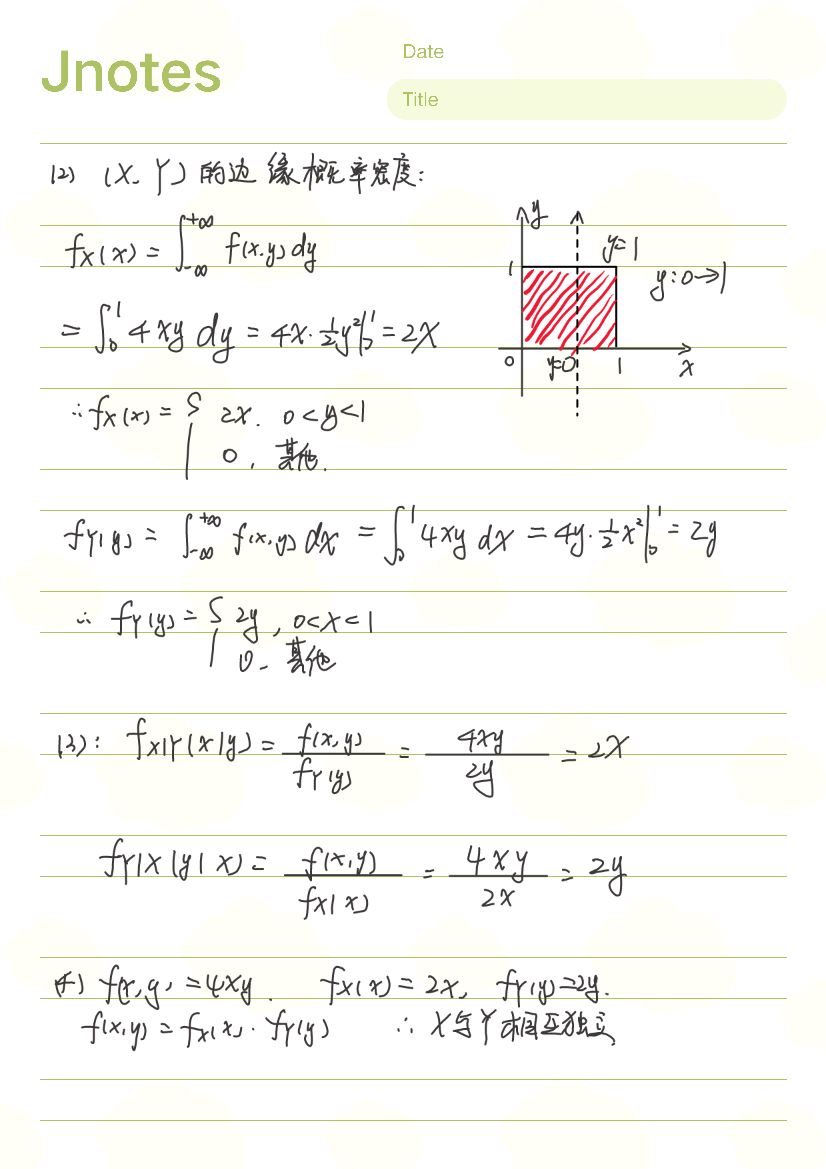 Jnotes
Date
Title
(2) (X, Y) 的边缘概率密度:
fX(x) = ∫_{-∞}^{+∞} f(x,y) dy
= ∫_0^1 4xy dy = 4x·½y²|_0^1 = 2x
∴ fX(x) = { 2x. 0<y<1
0, 其他.
y
y=1
1
y:0→1
0
y=0
1
x
fY(y) = ∫_{-∞}^{+∞} f(x,y) dx = ∫_0^1 4xy dx = 4y·½x²|_0^1 = 2y
∴ fY(y) = { 2y, 0<x<1
0, 其他
(3): fX|Y(x|y) = f(x,y)/fY(y) = 4xy/2y = 2x
fY|X(y|x) = f(x,y)/fX(x) = 4xy/2x = 2y
(4) f(x,y) = 4xy. fX(x) = 2x, fY(y)=2y.
f(x,y) = fX(x)·fY(y) ∴ X与Y相互独立